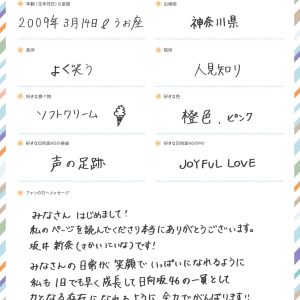 年齢(生年月日)&星座
出身地
2009年3月14日&うお座
神奈川県
長所
短所
よく笑う
人見知り
好きな食べ物
好きな色
ソフトクリーム
橙色、ピンク
好きな日向坂46の楽曲
好きな日向坂46のMV
声の足跡
JOYFUL LOVE
ファンの方へメッセージ
みなさん はじめまして!
私のページを読んでくださり本当にありがとうございます。
坂井新奈(さかいにいな)です!
みなさんの日常が笑顔でいっぱいになれるように
私も1日でも早く成長して日向坂46の一員として
力となる存在になれるように全力でがんばります!!